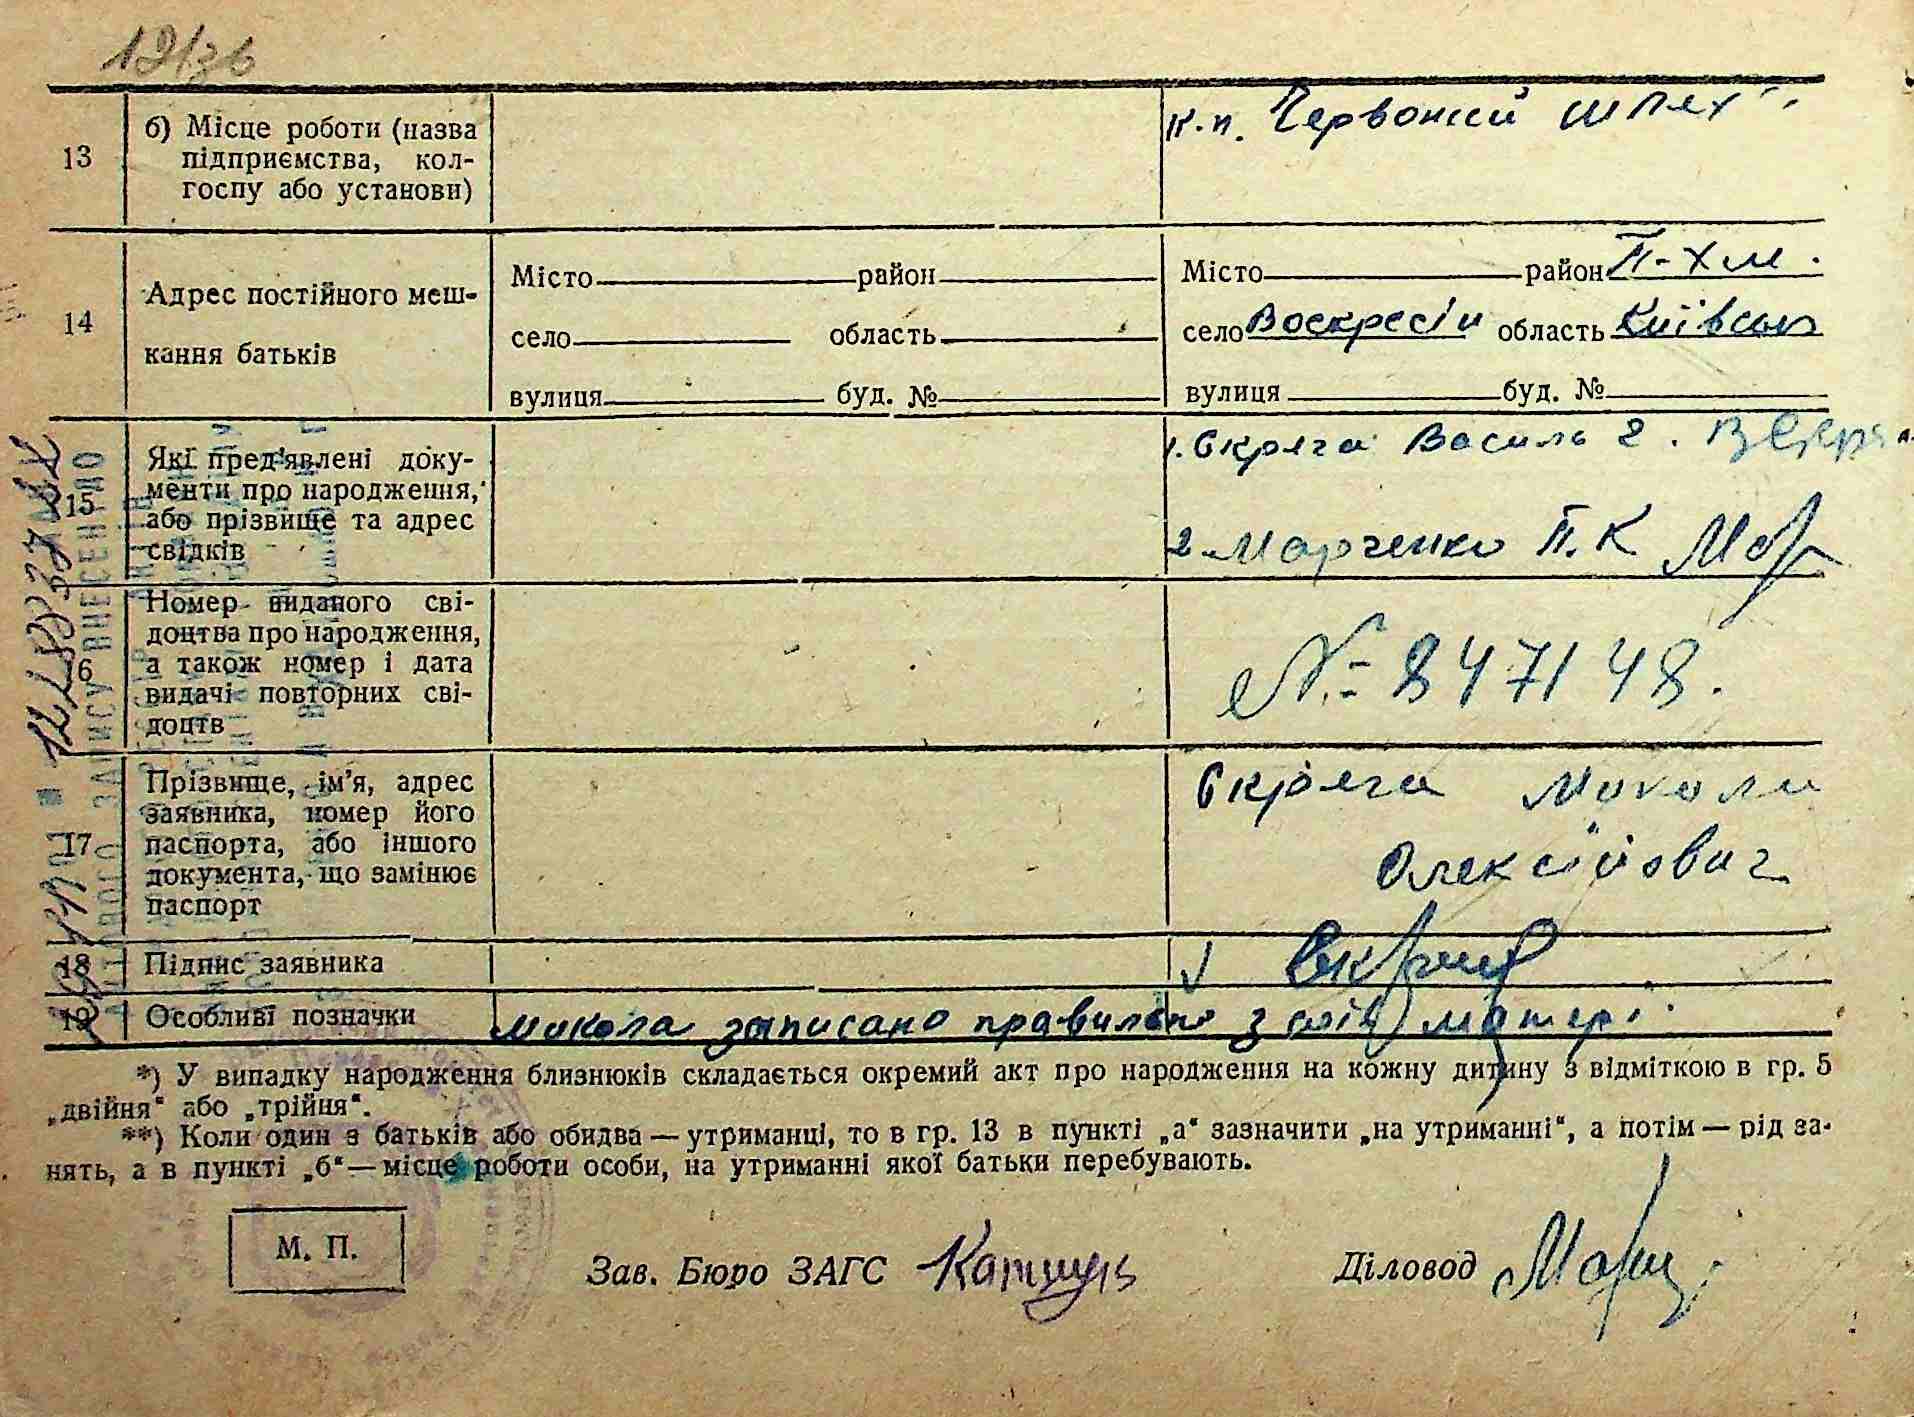 12/36
13 б) Місце роботи (назва
підприємства, кол-
госпу або установи)
к.п. Червоний шлях"
14 Адрес постійного меш-
кання батьків
Місто район
село область
вулиця буд. №
Місто район П-Хм.
село Воскресін область Київськ
вулиця буд. №
15 Які пред'явлені доку-
менти про народження,
або прізвище та адрес
свідків
1. Скряга Василь Г.
2 Марченко П.К Мар
16 Номер виданого сві-
доцтва про народження,
а також номер і дата
видачі повторних сві-
доцтв
№ 847148.
17 Прізвище, ім'я, адрес
заявника, номер його
паспорта, або іншого
документа, що замінює
паспорт
Скряга Микола
Олексійович
18 Підпис заявника
19 Особливі позначки
Микола записано правильно з слів матері.
*) У випадку народження близнюків складається окремий акт про народження на кожну дитину з відміткою в гр. 5
„двійня“ або „трійня“.
**) Коли один з батьків або обидва — утриманці, то в гр. 13 в пункті „а“ зазначити „на утриманні“, а потім — рід за-
нять, а в пункті „б“ — місце роботи особи, на утриманні якої батьки перебувають.
М. П.
Зав. Бюро ЗАГС
Діловод
ЗАПИСУ ВНЕСЕНО